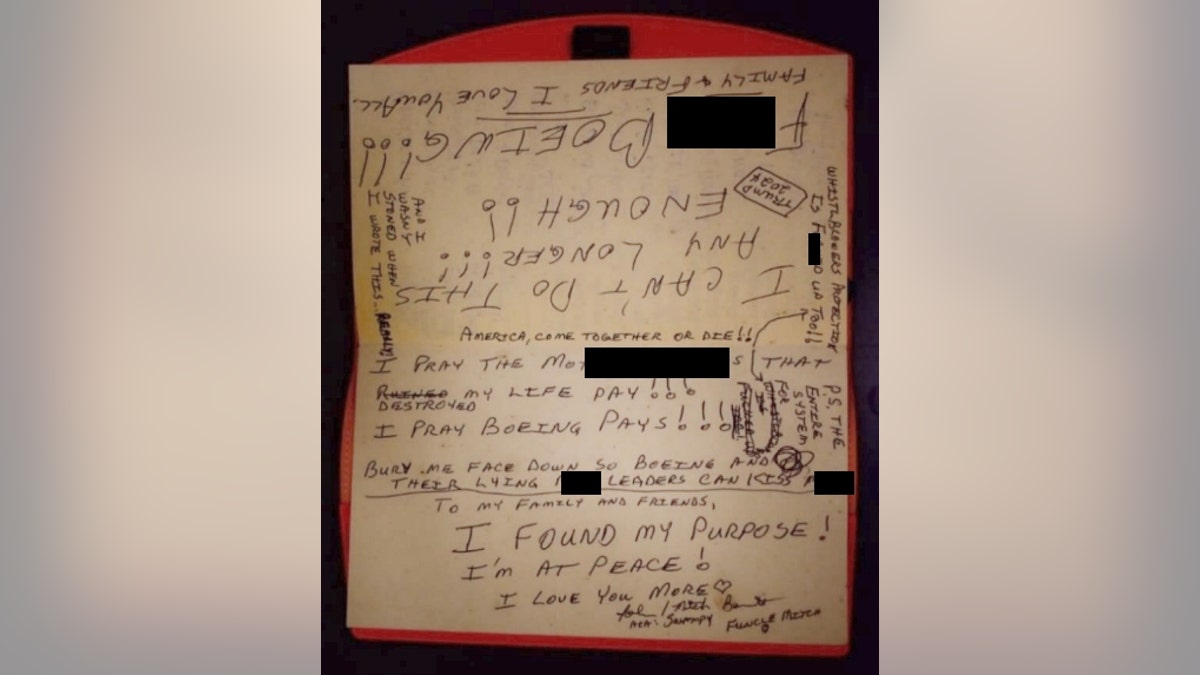 I CAN'T DO THIS
ANY LONGER!!!
ENOUGH!!
F BOEING!!!
FAMILY & FRIENDS I LOVE YOU ALL.
TRUMP
2024
WHISTLEBLOWERS PROTECTION
IS F D UP TOO!!
AND I
WASN'T
STONED WHEN
I WROTE THIS.. REALLY!
AMERICA, COME TOGETHER OR DIE!!
I PRAY THE MOT S THAT
RUINED MY LIFE PAY!!!
DESTROYED
I PRAY BOEING PAYS!!!!
P.S. THE
ENTIRE
SYSTEM
FOR
BURY ME FACE DOWN SO BOEING AND
THEIR LYING LEADERS CAN KISS M
TO MY FAMILY AND FRIENDS,
I FOUND MY PURPOSE!
I'M AT PEACE!
I LOVE YOU MORE
AKA: SWAMPY FUNCLE MITCH